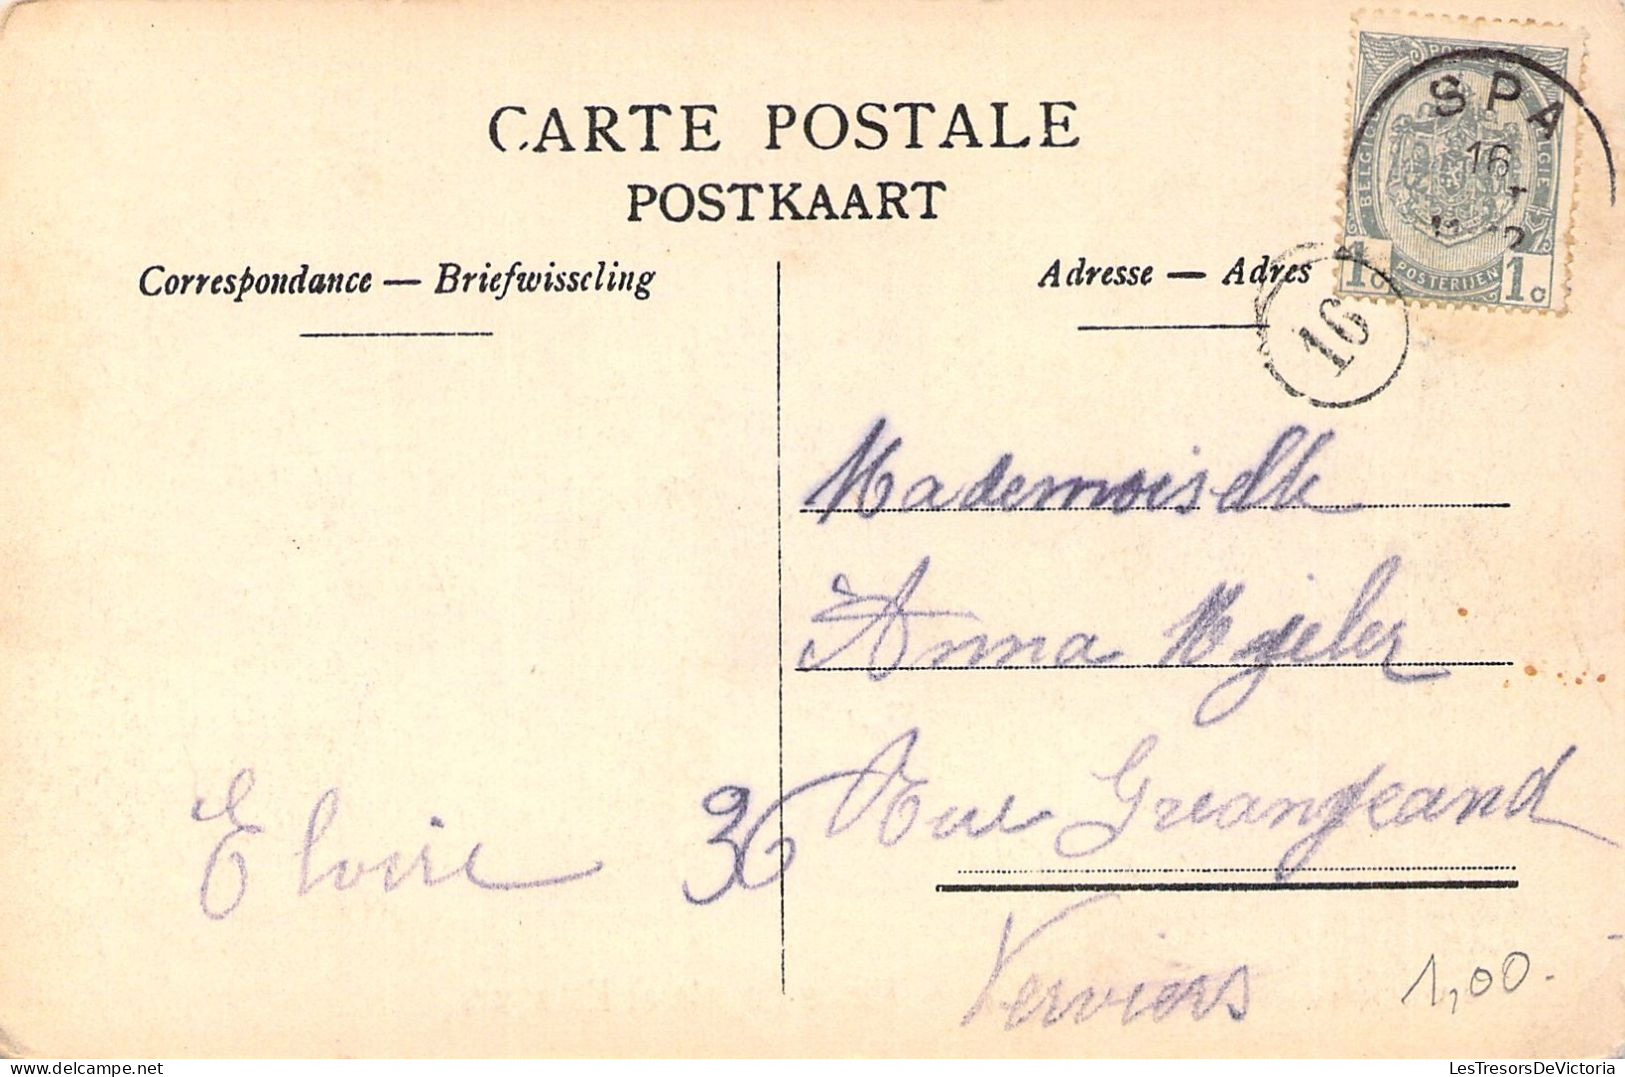 CARTE POSTALE
POSTKAART
Correspondance — Briefwisseling
Adresse — Adres
SPA
16
BELGIQUE
POSTERIJEN
1c 1c
16
Mademoiselle
Anna
36 Rue Greangeand
Verviers
Elvire
1,00.-
delcampe.net
LesTresorsDeVictoria